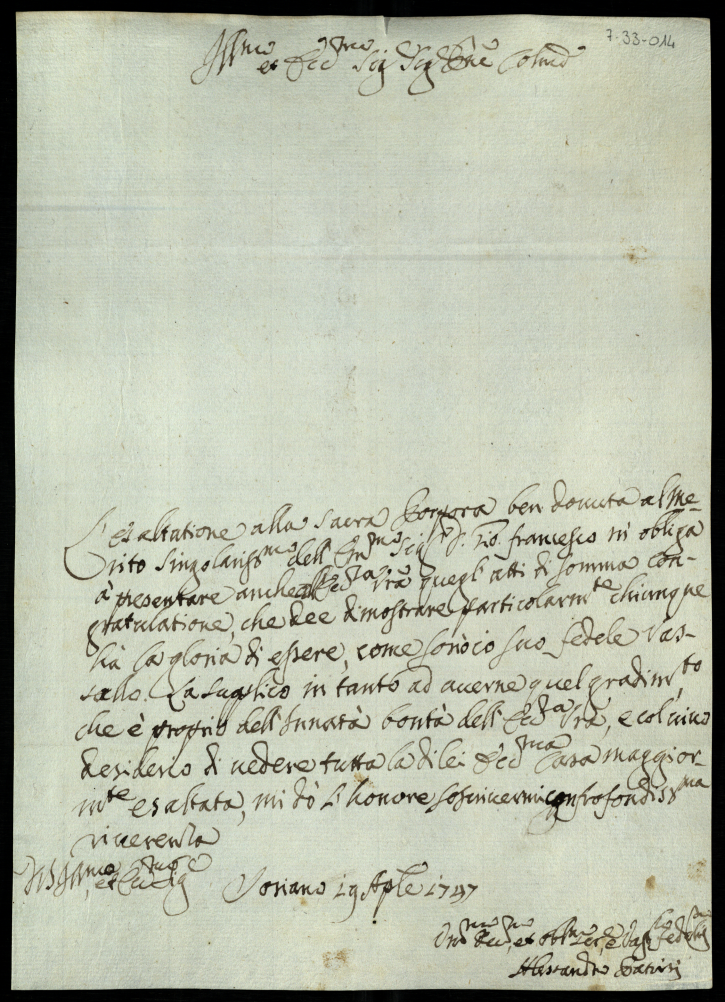 7-33-014
Ill.mo et Ecc.mo Sig Sig P.ne Colmo
L'esaltatione alla Sacra Porpora ben douuta al Me-
rito Singolariss.mo dell'Em.mo Sig.r D. Gio. Francesco m'obliga
à presentare anche all'Ecc.za Vrã quegli atti di somma con-
gratulatione, che dee dimostrare particolarm.te chiunque
hà la gloria di essere, come sono io suo fedele Vas-
sallo. La supplico in tanto ad auerne quel gradim.to
che è proprio dell'Innata bontà dell'Ecc.za Vrã, e col uiuo
desiderio di uedere tutta la di lei Ecc.ma Casa maggior-
m.te esaltata, mi dò l'honore soscriuermi con profondiss.ma
riuerenza
Di VS Ill.ma et Ecc.ma
Soriano 19 Aple 1747
Um.mo Deu.mo et obl.mo Ser.e e Vass.llo fedeliss.mo
Alessandro